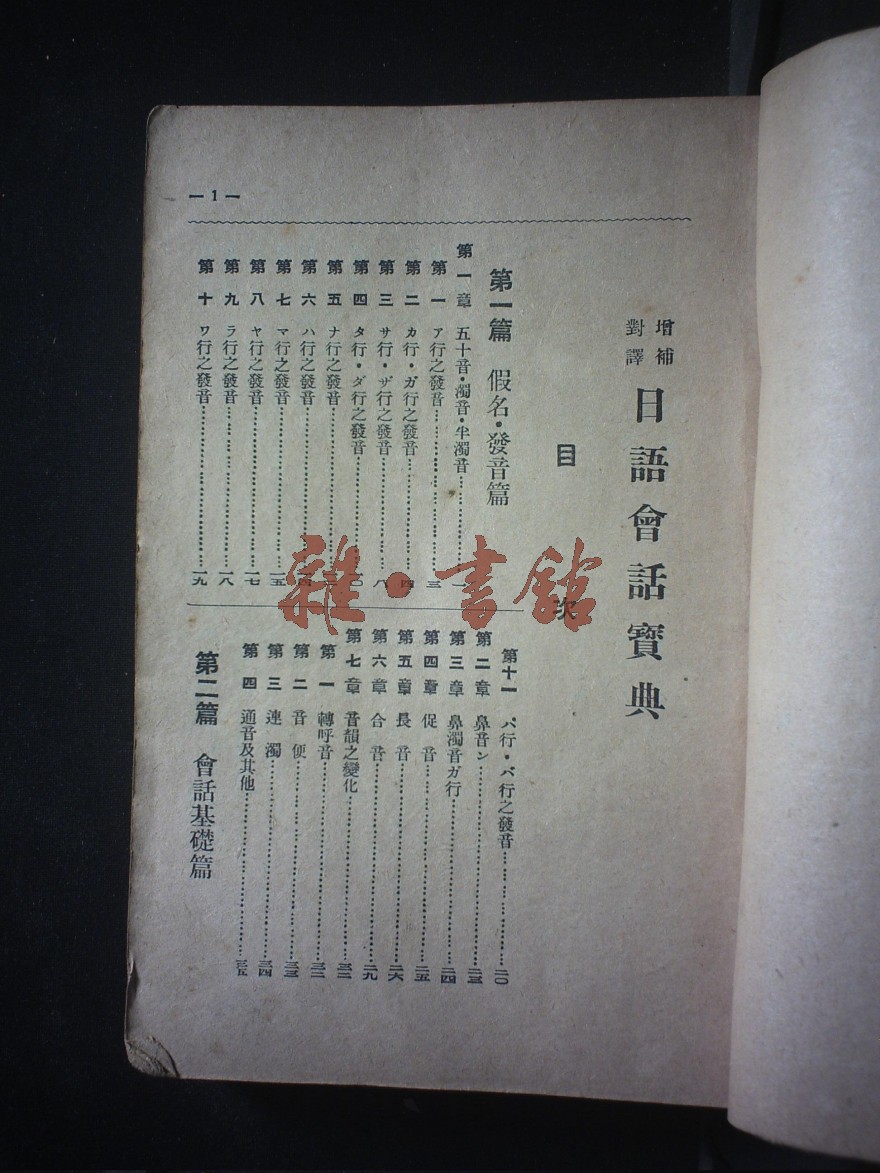 增補
對譯
日語會話寶典
目次
第一篇 假名・發音篇
第一章 五十音・濁音・半濁音
第一 ア行之發音 三
第二 カ行・ガ行之發音 四
第三 サ行・ザ行之發音 八
第四 タ行・ダ行之發音 一〇
第五 ナ行之發音
第六 ハ行之發音
第七 マ行之發音 一五
第八 ヤ行之發音 一七
第九 ラ行之發音 一八
第十 ワ行之發音 一九
第十一 パ行・バ行之發音 二〇
第二章 鼻音ン 二三
第三章 鼻濁音ガ行 二四
第四章 促音 二五
第五章 長音 二六
第六章 合音 二九
第七章 音韻之變化 三二
第一 轉呼音 三二
第二 音便 三三
第三 連濁 三四
第四 通音及其他 三五
第二篇 會話基礎篇
— 1 —
雜・書館